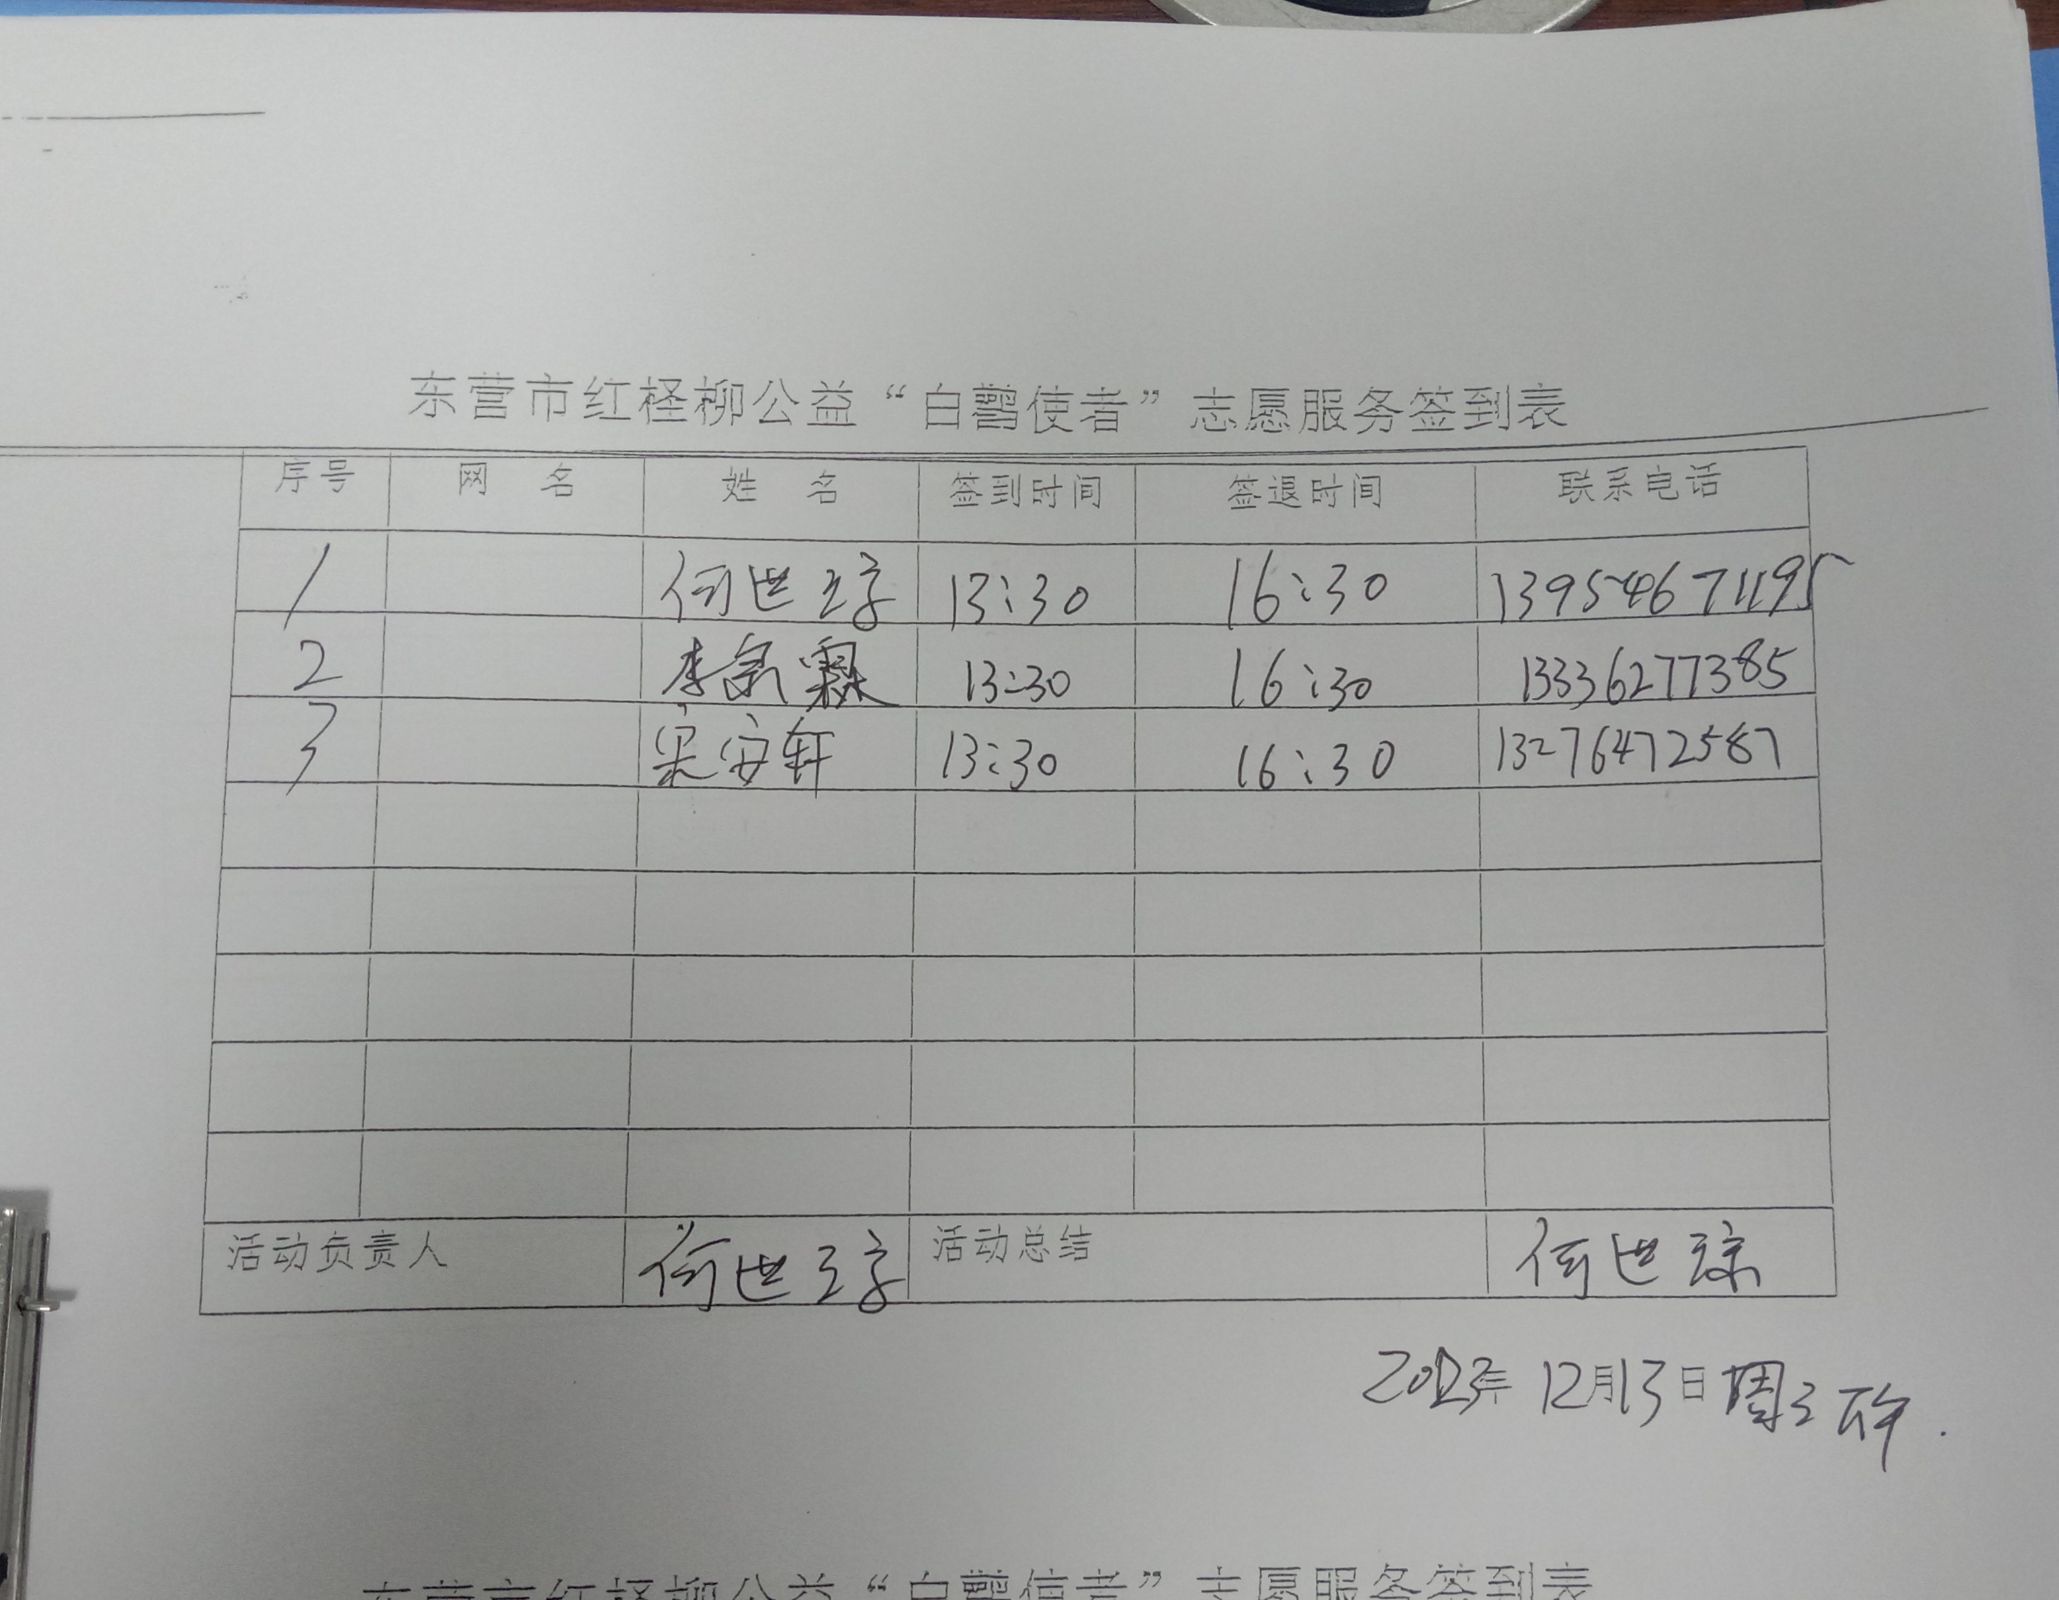 东营市红柽柳公益“白鹳使者”志愿服务签到表
序号 网 名 姓 名 签到时间 签退时间 联系电话
1 何世琼 13:30 16:30 13954671195
2 李 13:30 16:30 13336277385
3 宋安轩 13:30 16:30 13276472587
活动负责人 何世琼 活动总结 何世琼
2023年12月13日周三下午.
东营市红柽柳公益“白鹳使者”志愿服务签到表